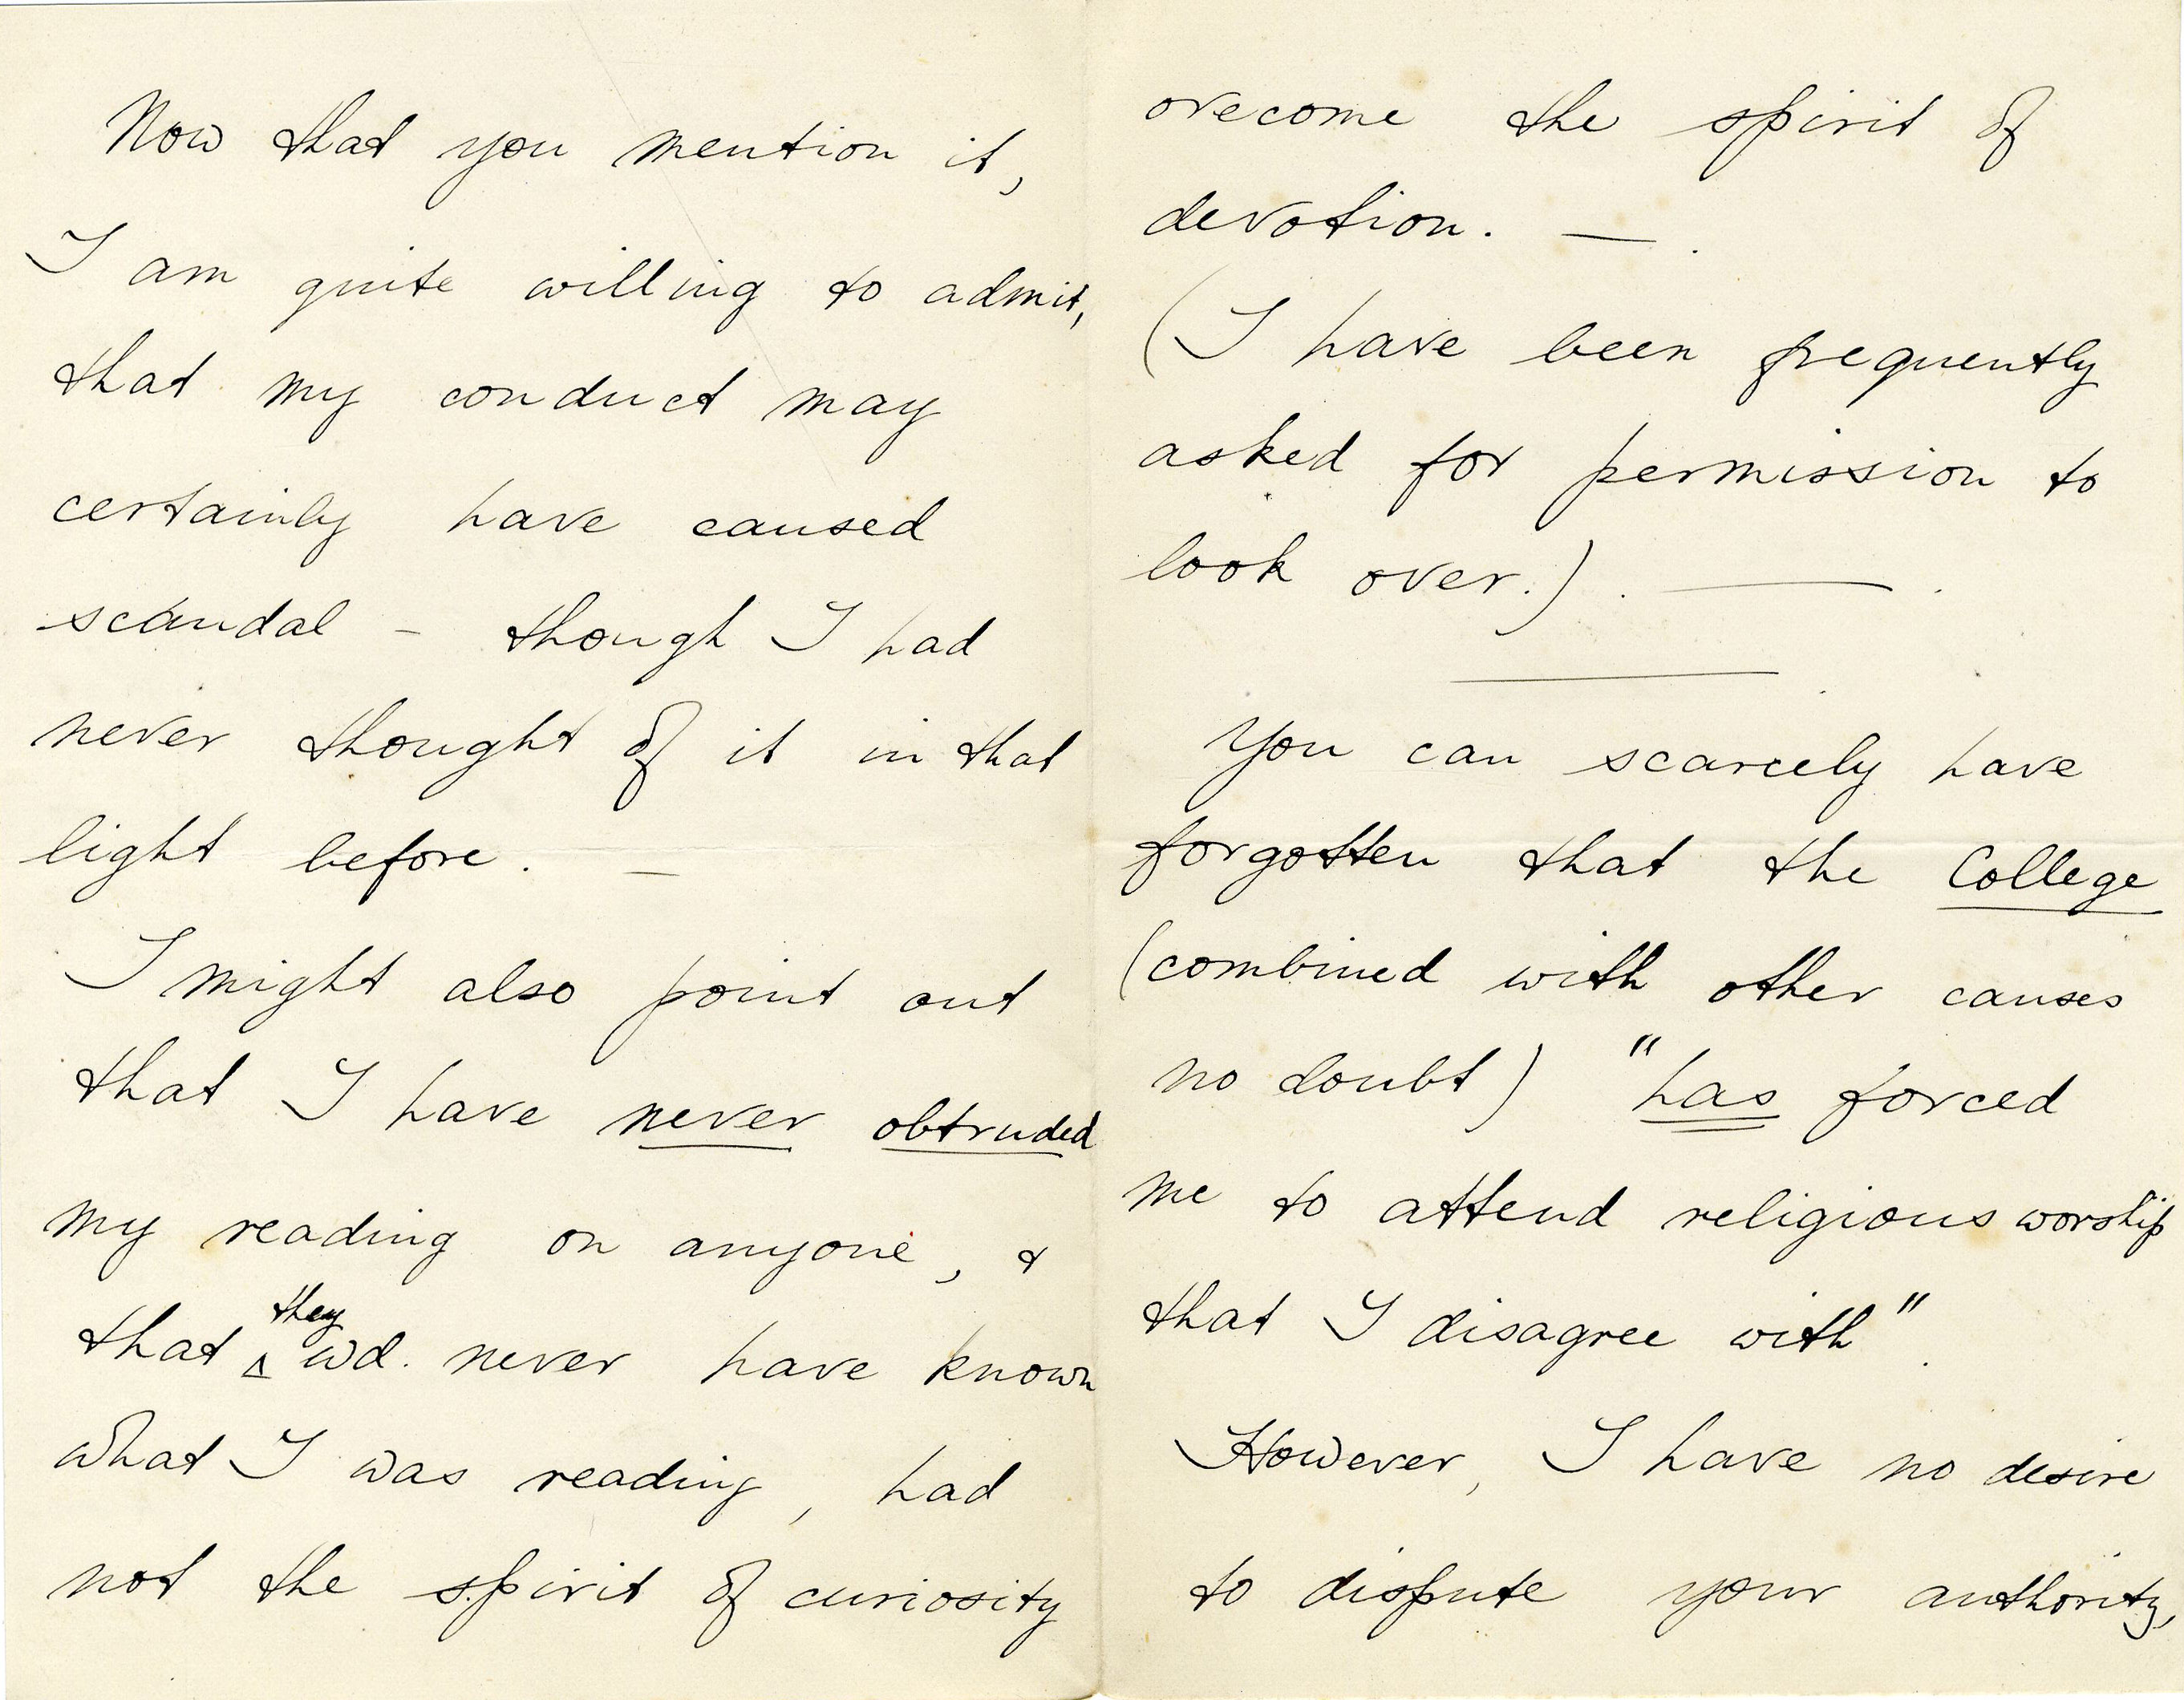 Now that you mention it,
I am quite willing to admit,
that my conduct may
certainly have caused
scandal - though I had
never thought of it in that
light before. —
I might also point out
that I have never obtruded
my reading on anyone, &
that they wd. never have known
what I was reading, had
not the spirit of curiosity
overcome the spirit of
devotion. —
(I have been frequently
asked for permission to
look over.). —
You can scarcely have
forgotten that the College
(combined with other causes
no doubt) "has forced
me to attend religious worship
that I disagree with".
However, I have no desire
to dispute your authority,